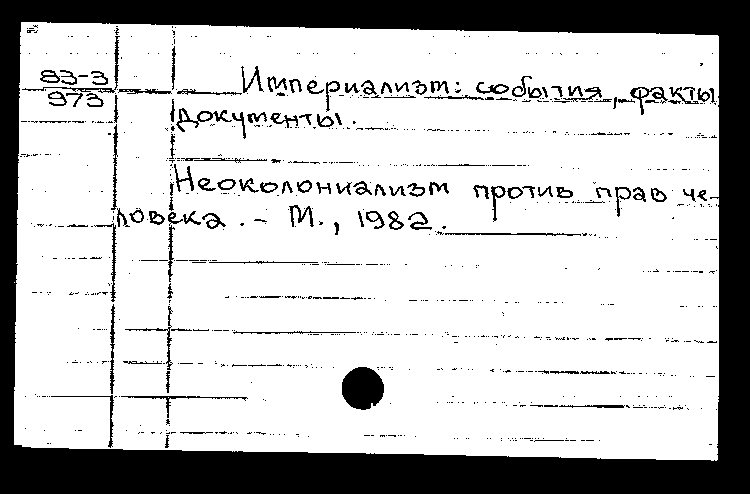 83-3
973
Империализм: события, факты
документы.
Неоколониализм против прав че-
ловека. - М., 1982.